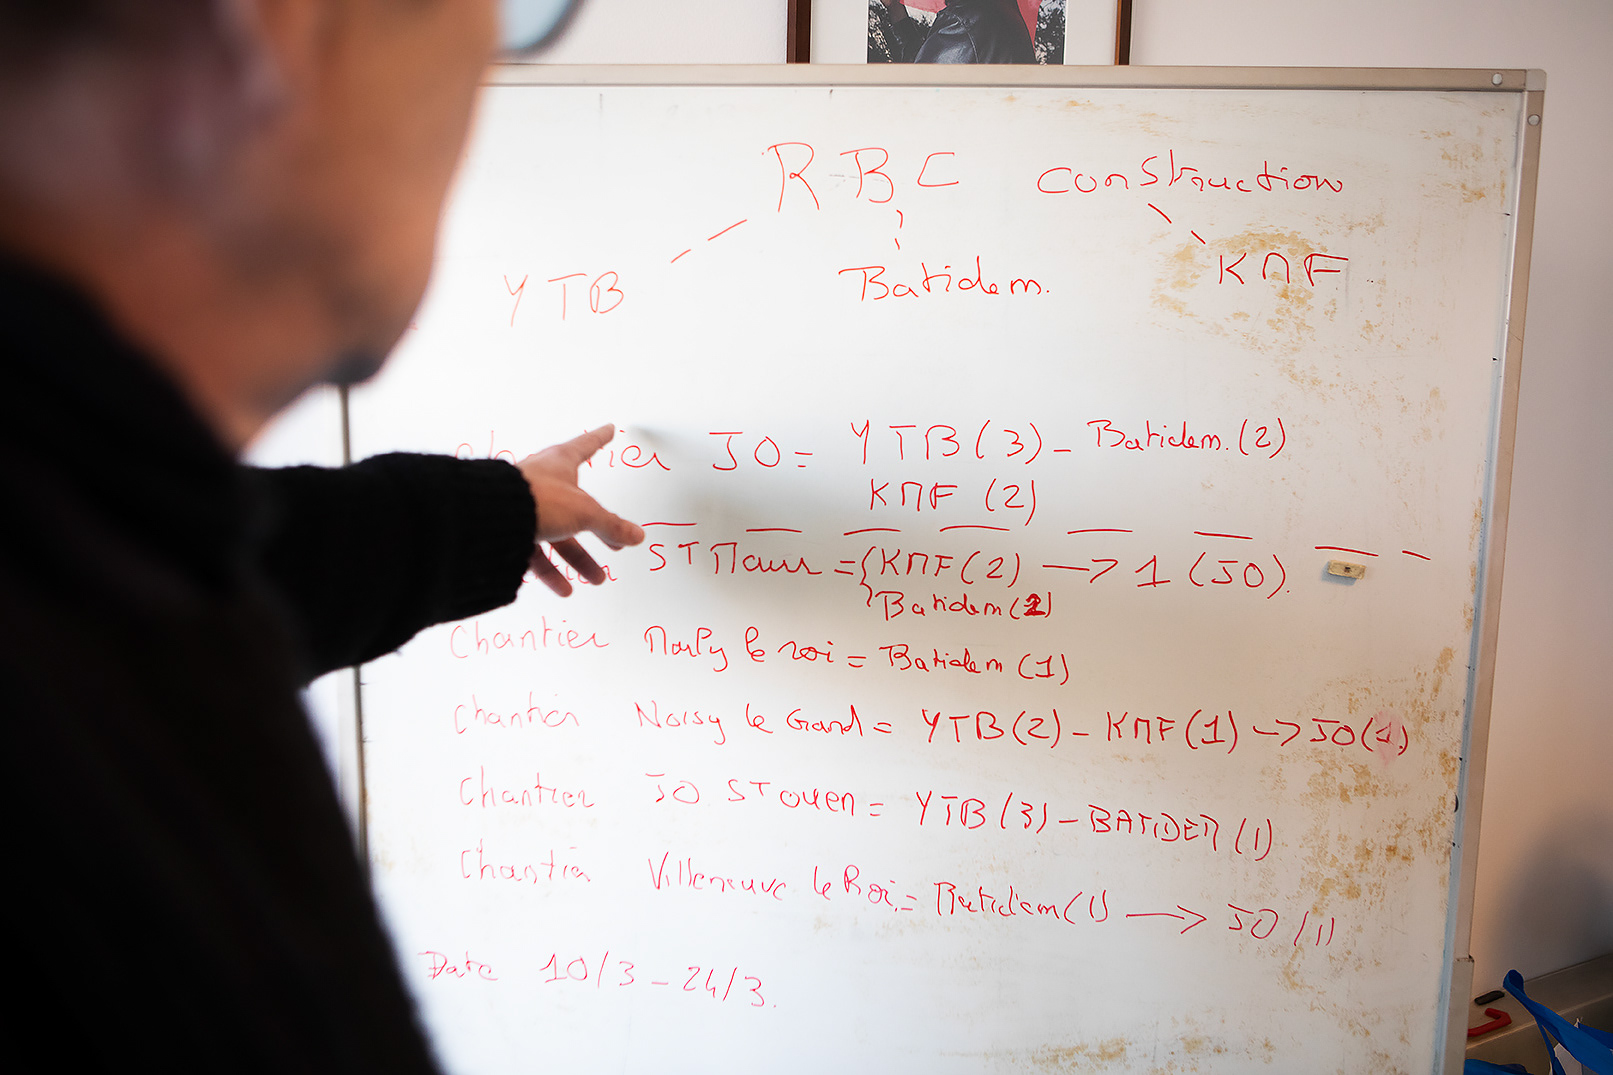 RBC construction
YTB Batidem. KMF
Chantier JO = YTB (3) - Batidem. (2)
KMF (2)
ST Maur = { KMF (2) → 1 (JO).
Batidem (2)
Chantier Marly le roi = Batidem (1)
Chantier Noisy le Grand = YTB (2) - KMF (1) → JO (1)
Chantier JO ST ouen = YTB (3) - BATIDEM (1)
Chantier Villeneuve le Roi = Batidem (1) → JO (1)
Date 10/3 - 24/3.